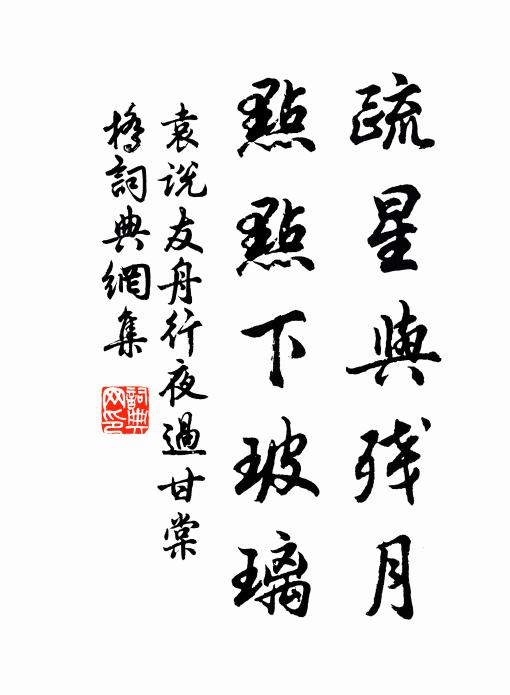 疏星與残月
點點下玻璃
袁说友舟行夜過甘棠
橋詞典網集
詞典
网印